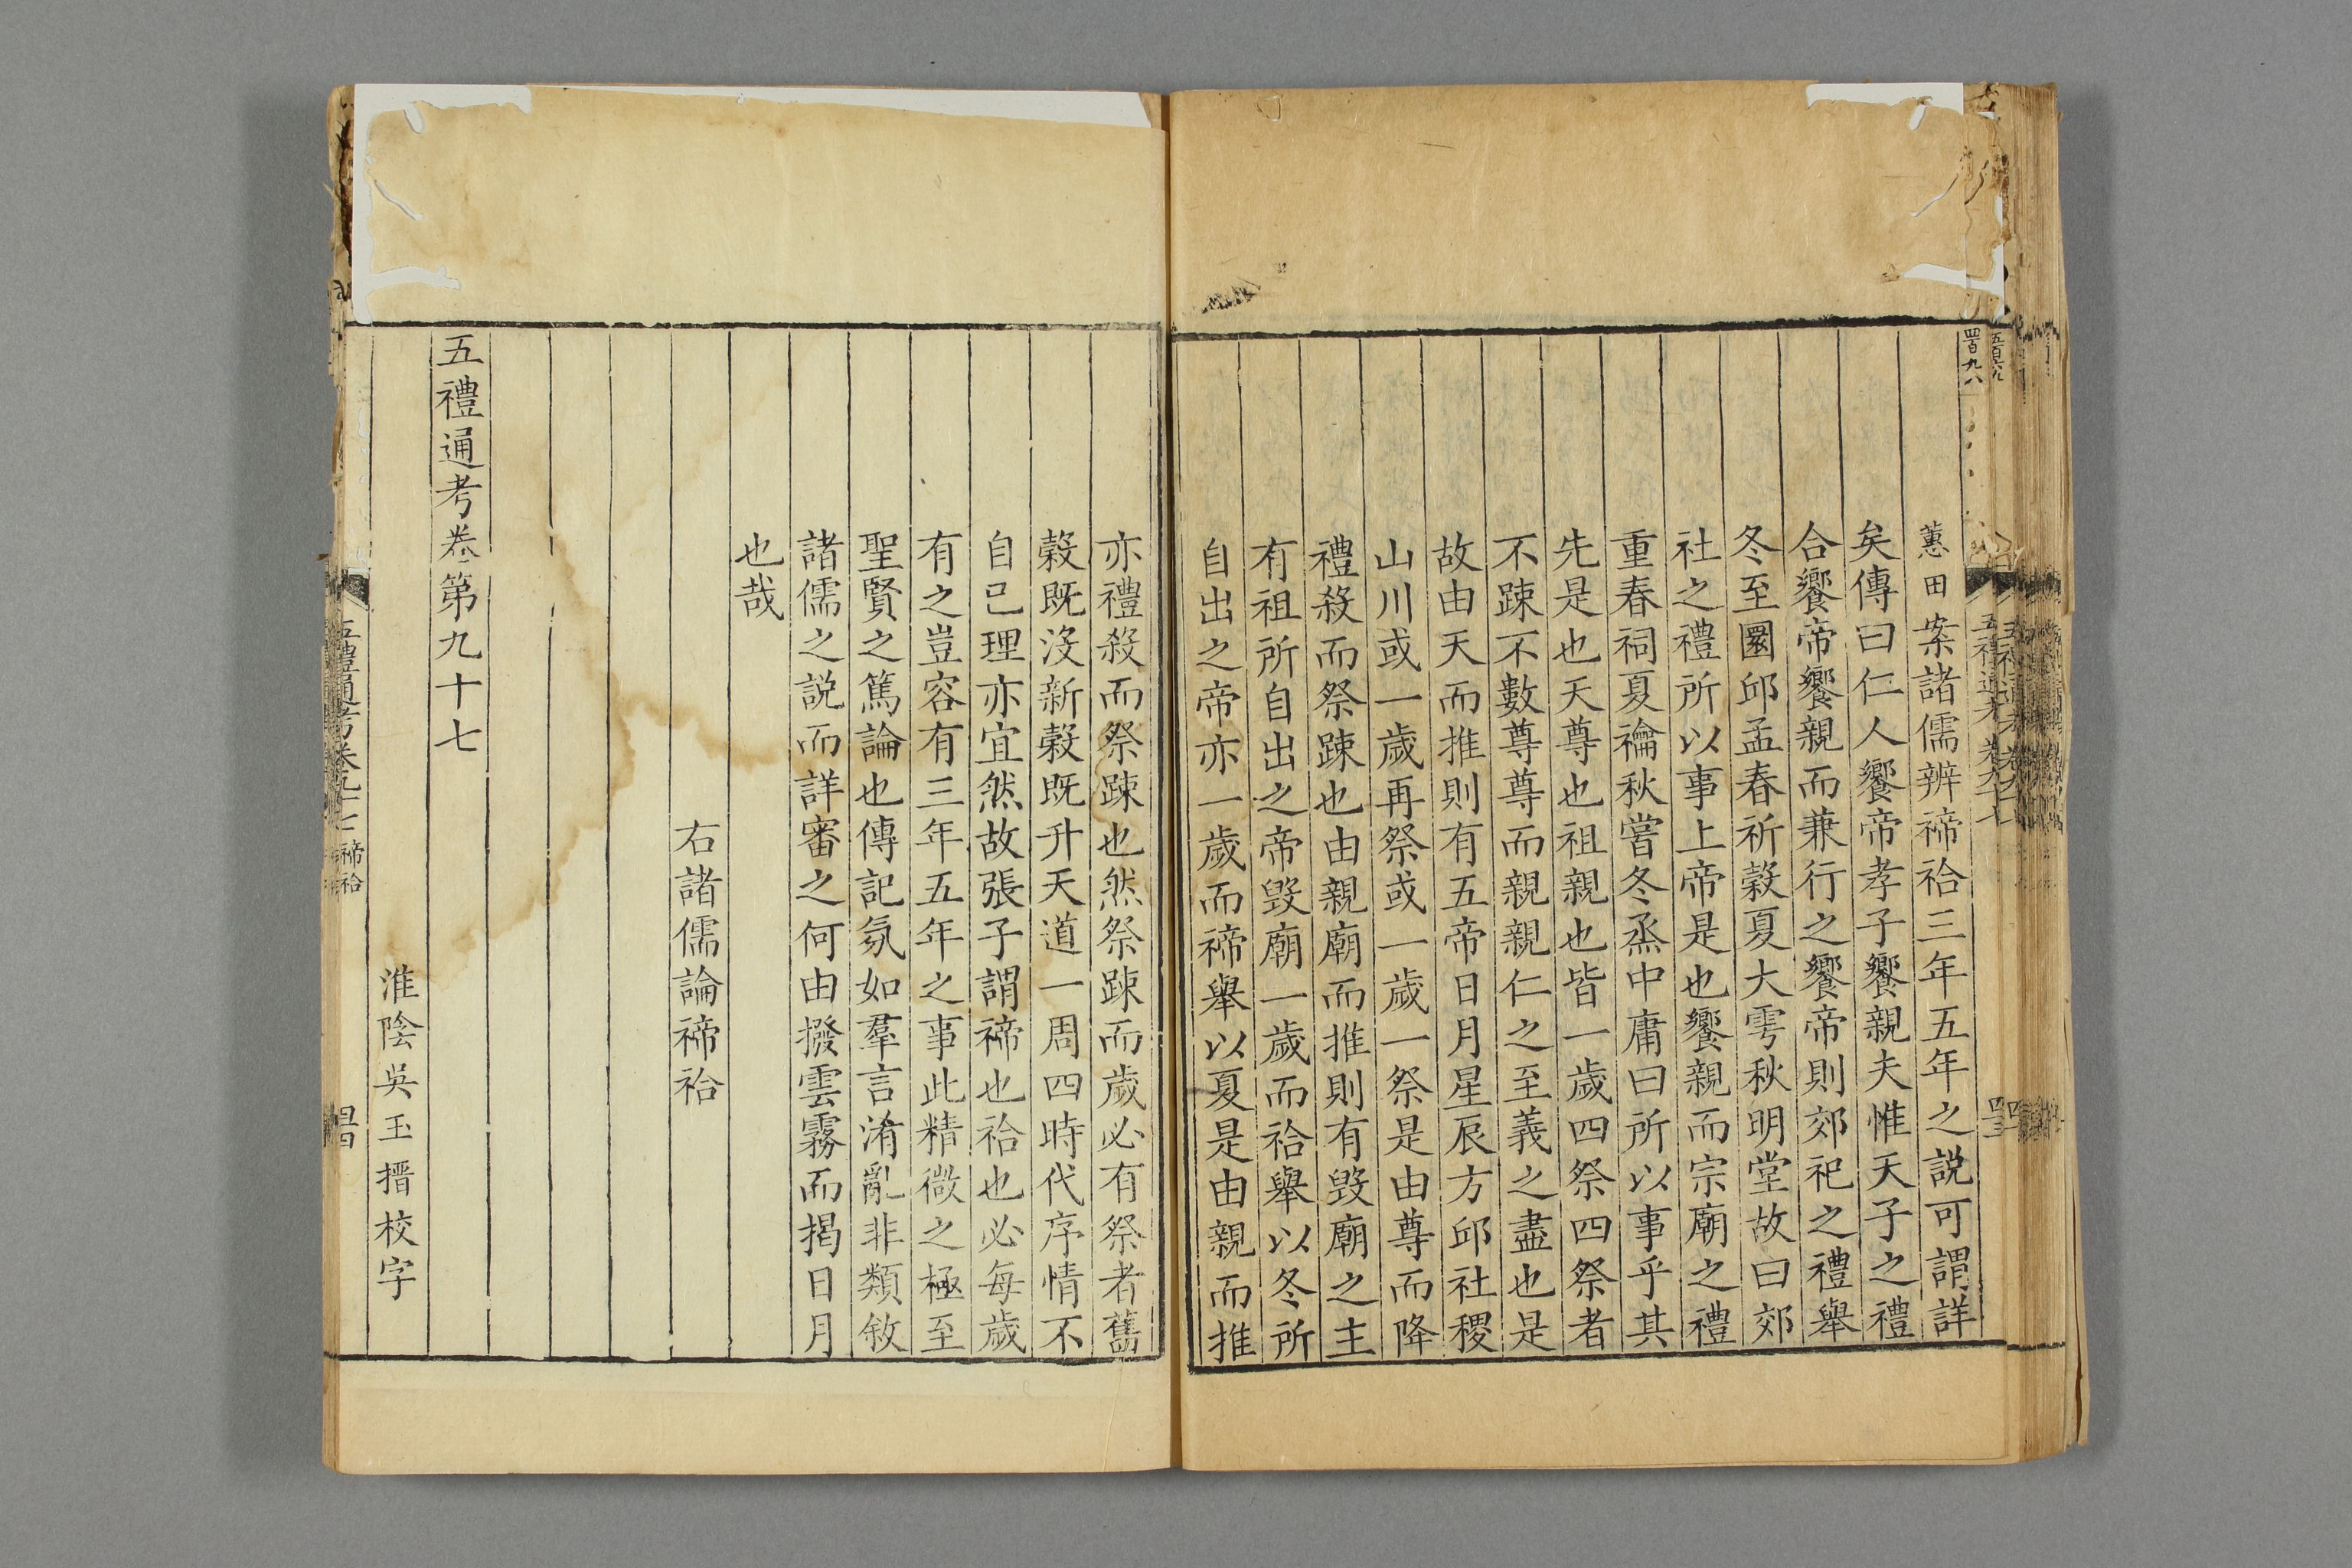 蕙田案諸儒辨禘祫三年五年之説可謂詳
矣傳曰仁人饗帝孝子饗親夫惟天子之禮
合饗帝饗親而兼行之饗帝則郊祀之禮舉
冬至圜邱孟春祈穀夏大雩秋明堂故曰郊
社之禮所以事上帝是也饗親而宗廟之禮
重春祠夏禴秋嘗冬烝中庸曰所以事乎其
先是也天尊也祖親也皆一歲四祭四祭者
不踈不數尊尊而親親仁之至義之盡也是
故由天而推則有五帝日月星辰方邱社稷
山川或一歲再祭或一歲一祭是由尊而降
禮殺而祭踈也由親廟而推則有毀廟之主
有祖所自出之帝毀廟一歲而祫舉以冬所
自出之帝亦一歲而禘舉以夏是由親而推
亦禮殺而祭踈也然祭踈而歲必有祭者舊
穀既沒新穀既升天道一周四時代序情不
自已理亦宜然故張子謂禘也祫也必每歲
有之豈容有三年五年之事此精微之極至
聖賢之篤論也傳記氛如羣言淆亂非類敘
諸儒之説而詳審之何由撥雲霧而揭日月
也哉
右諸儒論禘祫
五禮通考卷第九十七
淮陰吳玉搢校字
五禮通考卷九十七 禘祫